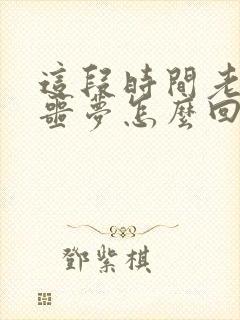 這段時間老
噩夢怎麼回
鄧紫棋